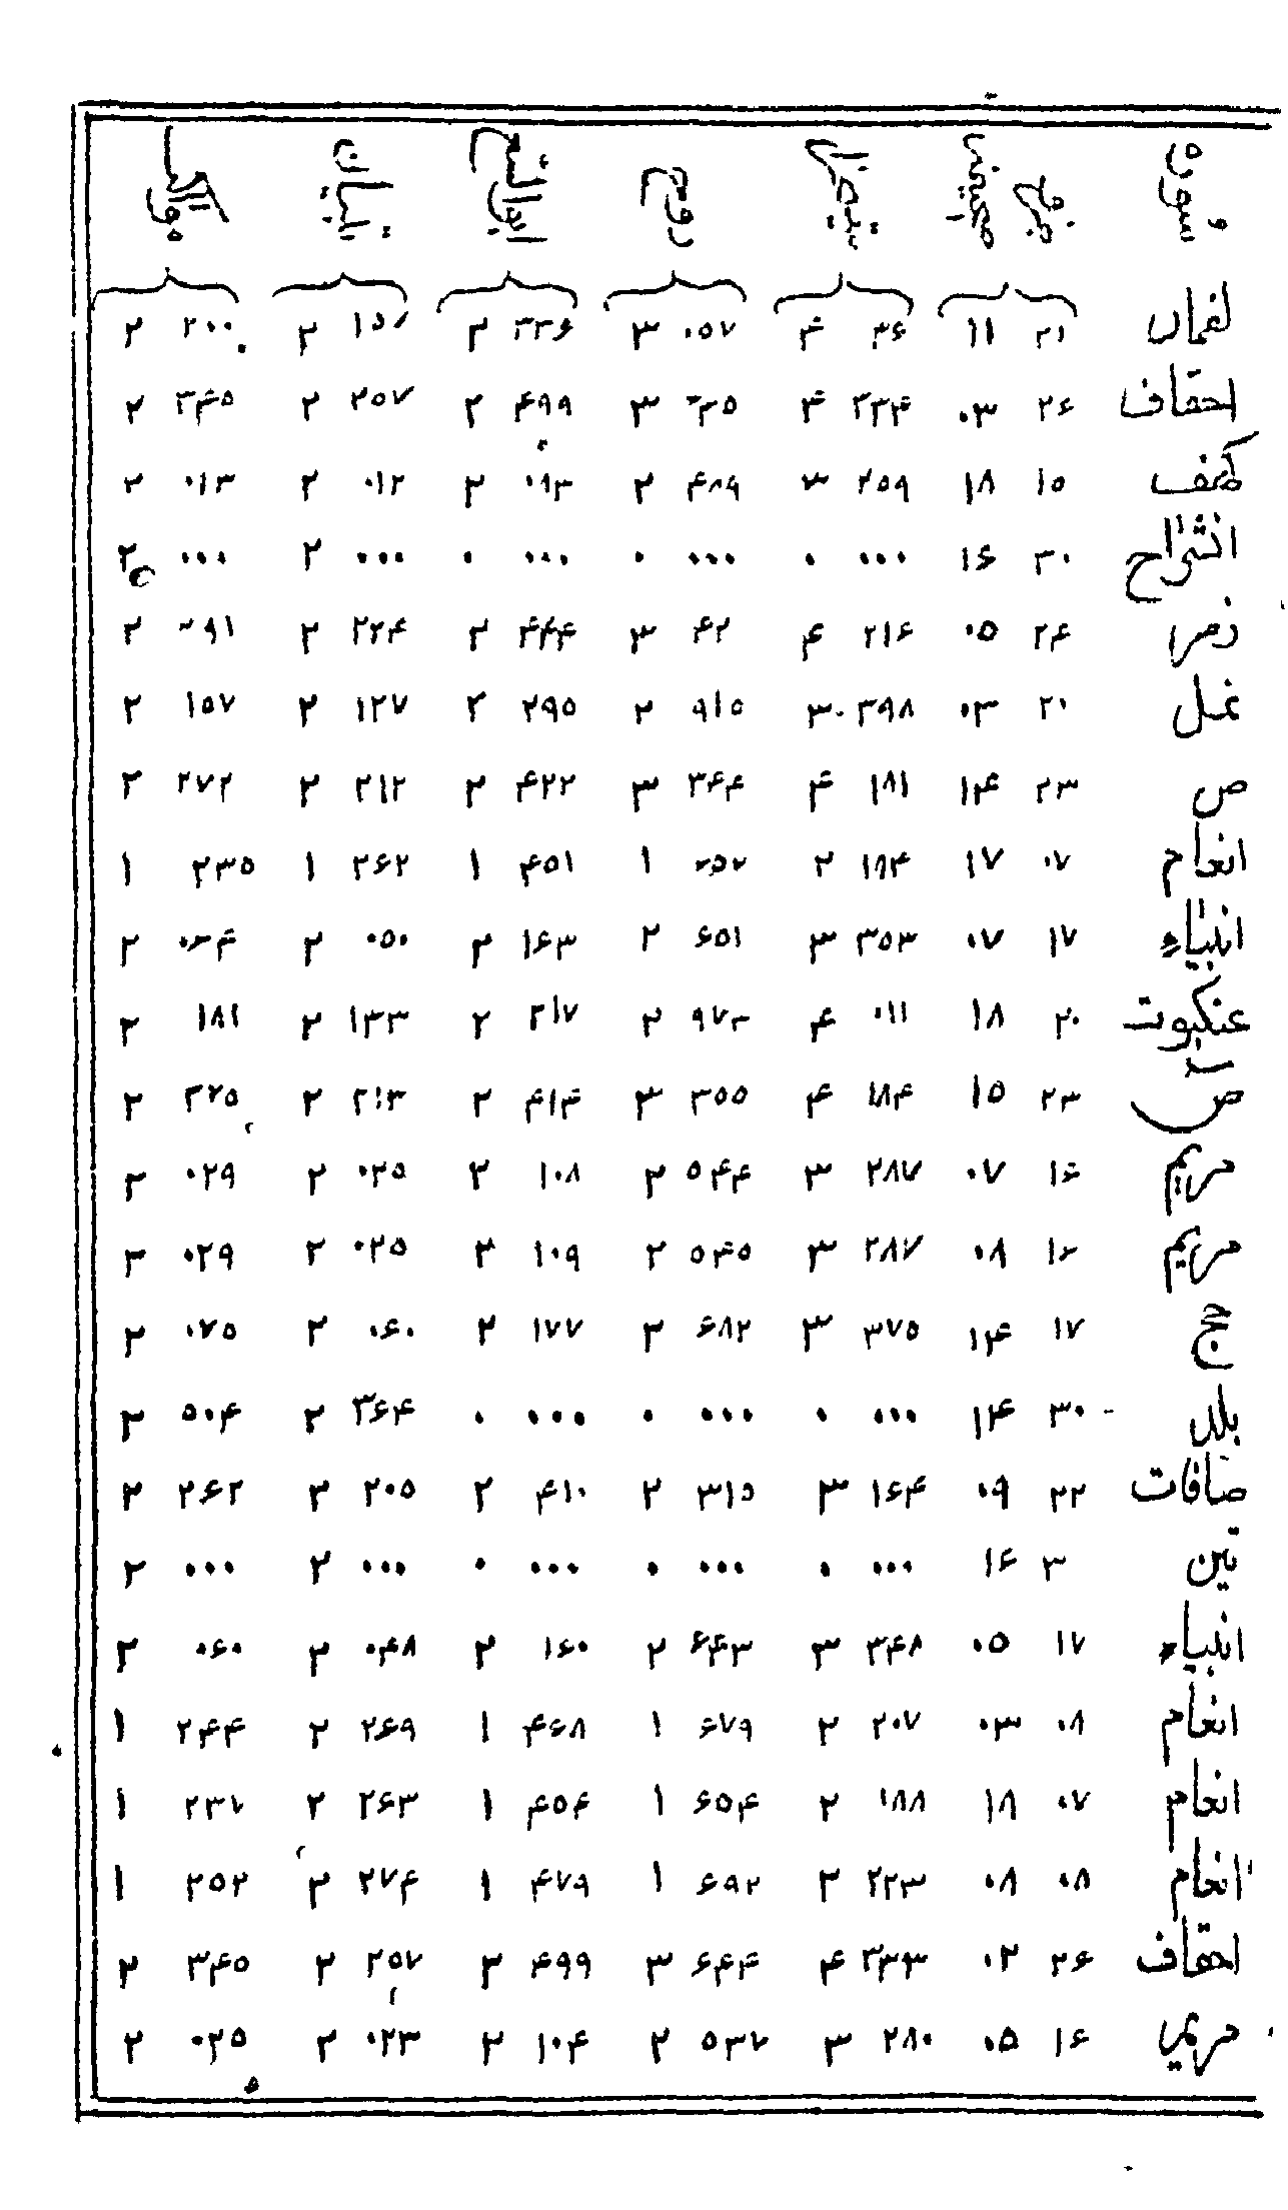 سوره جزء صحیفه روح تبیان
لقمان ۲۱ ۱۱ ۳۶ ۴ ۰۵۷ ۳ ۳۳۶ ۲ ۲ ۲۰۰ ۲
احقاف ۲۶ ۰۳ ۲۳۴ ۴ ۳ ۴۹۹ ۲ ۲۵۷ ۲ ۳۴۵ ۲
کهف ۱۵ ۱۸ ۲۵۹ ۳ ۴۸۹ ۲ ۰۹۳ ۲ ۰۱۲ ۲ ۰۱۳ ۲
انشراح ۳۰ ۱۶ ۰۰۰ ۰ ۰۰۰ ۰ ۰۰۰ ۰ ۰۰۰ ۲ ۰۰۰ ۲
زمر ۲۴ ۰۵ ۲۱۶ ۴ ۴۲ ۳ ۴۴۴ ۲ ۲۲۴ ۲ ۲۹۱ ۲
نمل ۲۰ ۰۳ ۳۹۸ ۳ ۹۱۵ ۲ ۲۹۵ ۲ ۱۲۷ ۲ ۱۵۷ ۲
ص ۲۳ ۱۴ ۱۸۱ ۴ ۳۴۴ ۳ ۴۲۲ ۲ ۲۱۲ ۲ ۲۷۲ ۲
انعام ۰۷ ۱۷ ۱۸۴ ۲ ۱ ۴۵۱ ۱ ۲۶۲ ۱ ۲۳۵ ۱
انبیاء ۱۷ ۰۷ ۳۵۳ ۳ ۶۵۱ ۲ ۱۶۳ ۲ ۰۵۰ ۲ ۲
عنکبوت ۲۰ ۱۸ ۰۱۱ ۴ ۹۷۳ ۲ ۳۱۷ ۲ ۱۳۳ ۲ ۱۸۱ ۲
ص ۲۳ ۱۵ ۱۸۴ ۴ ۳۵۵ ۳ ۴۱۴ ۲ ۲۱۳ ۲ ۲۷۵ ۲
مریم ۱۶ ۰۷ ۲۸۷ ۳ ۵۴۴ ۲ ۱۰۸ ۲ ۰۲۵ ۲ ۰۲۹ ۲
مریم ۱۶ ۰۸ ۲۸۷ ۳ ۵۴۵ ۲ ۱۰۹ ۲ ۰۲۵ ۲ ۰۲۹ ۲
حج ۱۷ ۱۴ ۳۷۵ ۳ ۶۸۲ ۲ ۱۷۷ ۲ ۰۶۰ ۲ ۰۷۵ ۲
بلد ۳۰ ۱۴ ۰۰۰ ۰ ۰۰۰ ۰ ۰۰۰ ۰ ۳۶۴ ۲ ۵۰۴ ۲
صافات ۲۲ ۰۹ ۱۶۴ ۳ ۳۱۵ ۲ ۴۱۰ ۲ ۲۰۵ ۲ ۲۶۲ ۲
تین ۳ ۱۶ ۰۰۰ ۰ ۰۰۰ ۰ ۰۰۰ ۰ ۰۰۰ ۲ ۰۰۰ ۲
انبیاء ۱۷ ۰۵ ۳۴۸ ۳ ۶۴۳ ۲ ۱۶۰ ۲ ۰۴۸ ۲ ۰۶۰ ۲
انعام ۰۸ ۰۳ ۲۰۷ ۲ ۶۷۹ ۱ ۴۶۸ ۱ ۲۶۹ ۲ ۲۴۴ ۱
انعام ۰۷ ۱۸ ۱۸۸ ۲ ۶۵۴ ۱ ۴۵۴ ۱ ۲۶۳ ۲ ۲۳۷ ۱
انعام ۰۸ ۰۸ ۲۲۳ ۲ ۶۹۲ ۱ ۴۷۹ ۱ ۲۷۴ ۲ ۲۵۲ ۱
احقاف ۲۶ ۰۲ ۲۳۳ ۴ ۶۴۴ ۳ ۴۹۹ ۲ ۲۵۷ ۲ ۳۴۵ ۲
مریم ۱۶ ۰۵ ۲۸۰ ۳ ۵۳۷ ۲ ۱۰۴ ۲ ۰۲۳ ۲ ۰۲۵ ۲